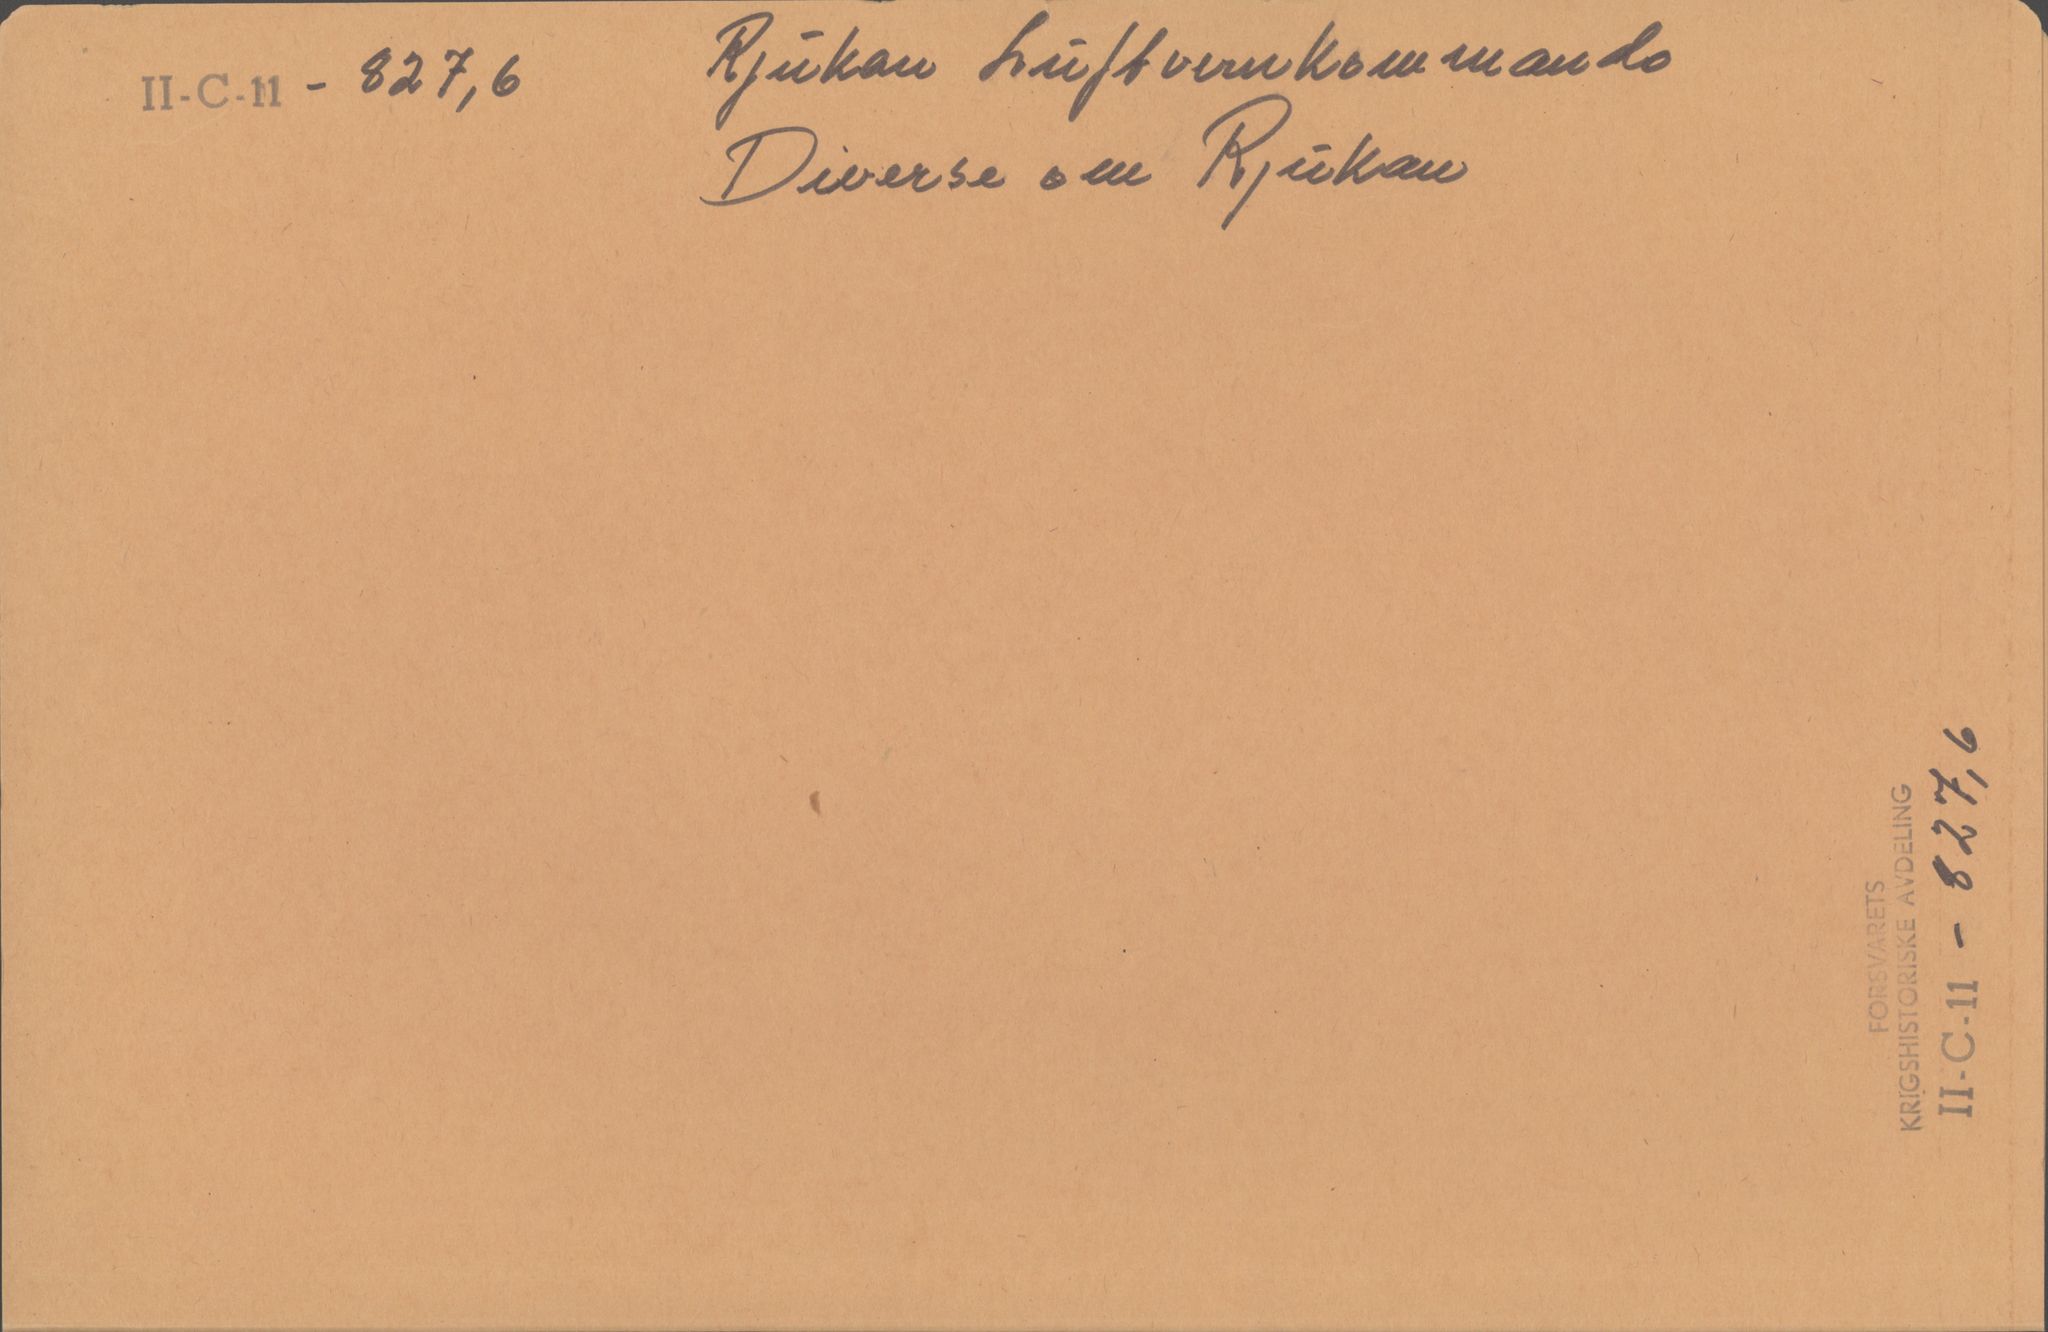 II-C-11 - 827,6
Rjukan Luftvernkommando
Diverse om Rjukan
FORSVARETS
KRIGSHISTORISKE AVDELING
II-C-11 - 827,6